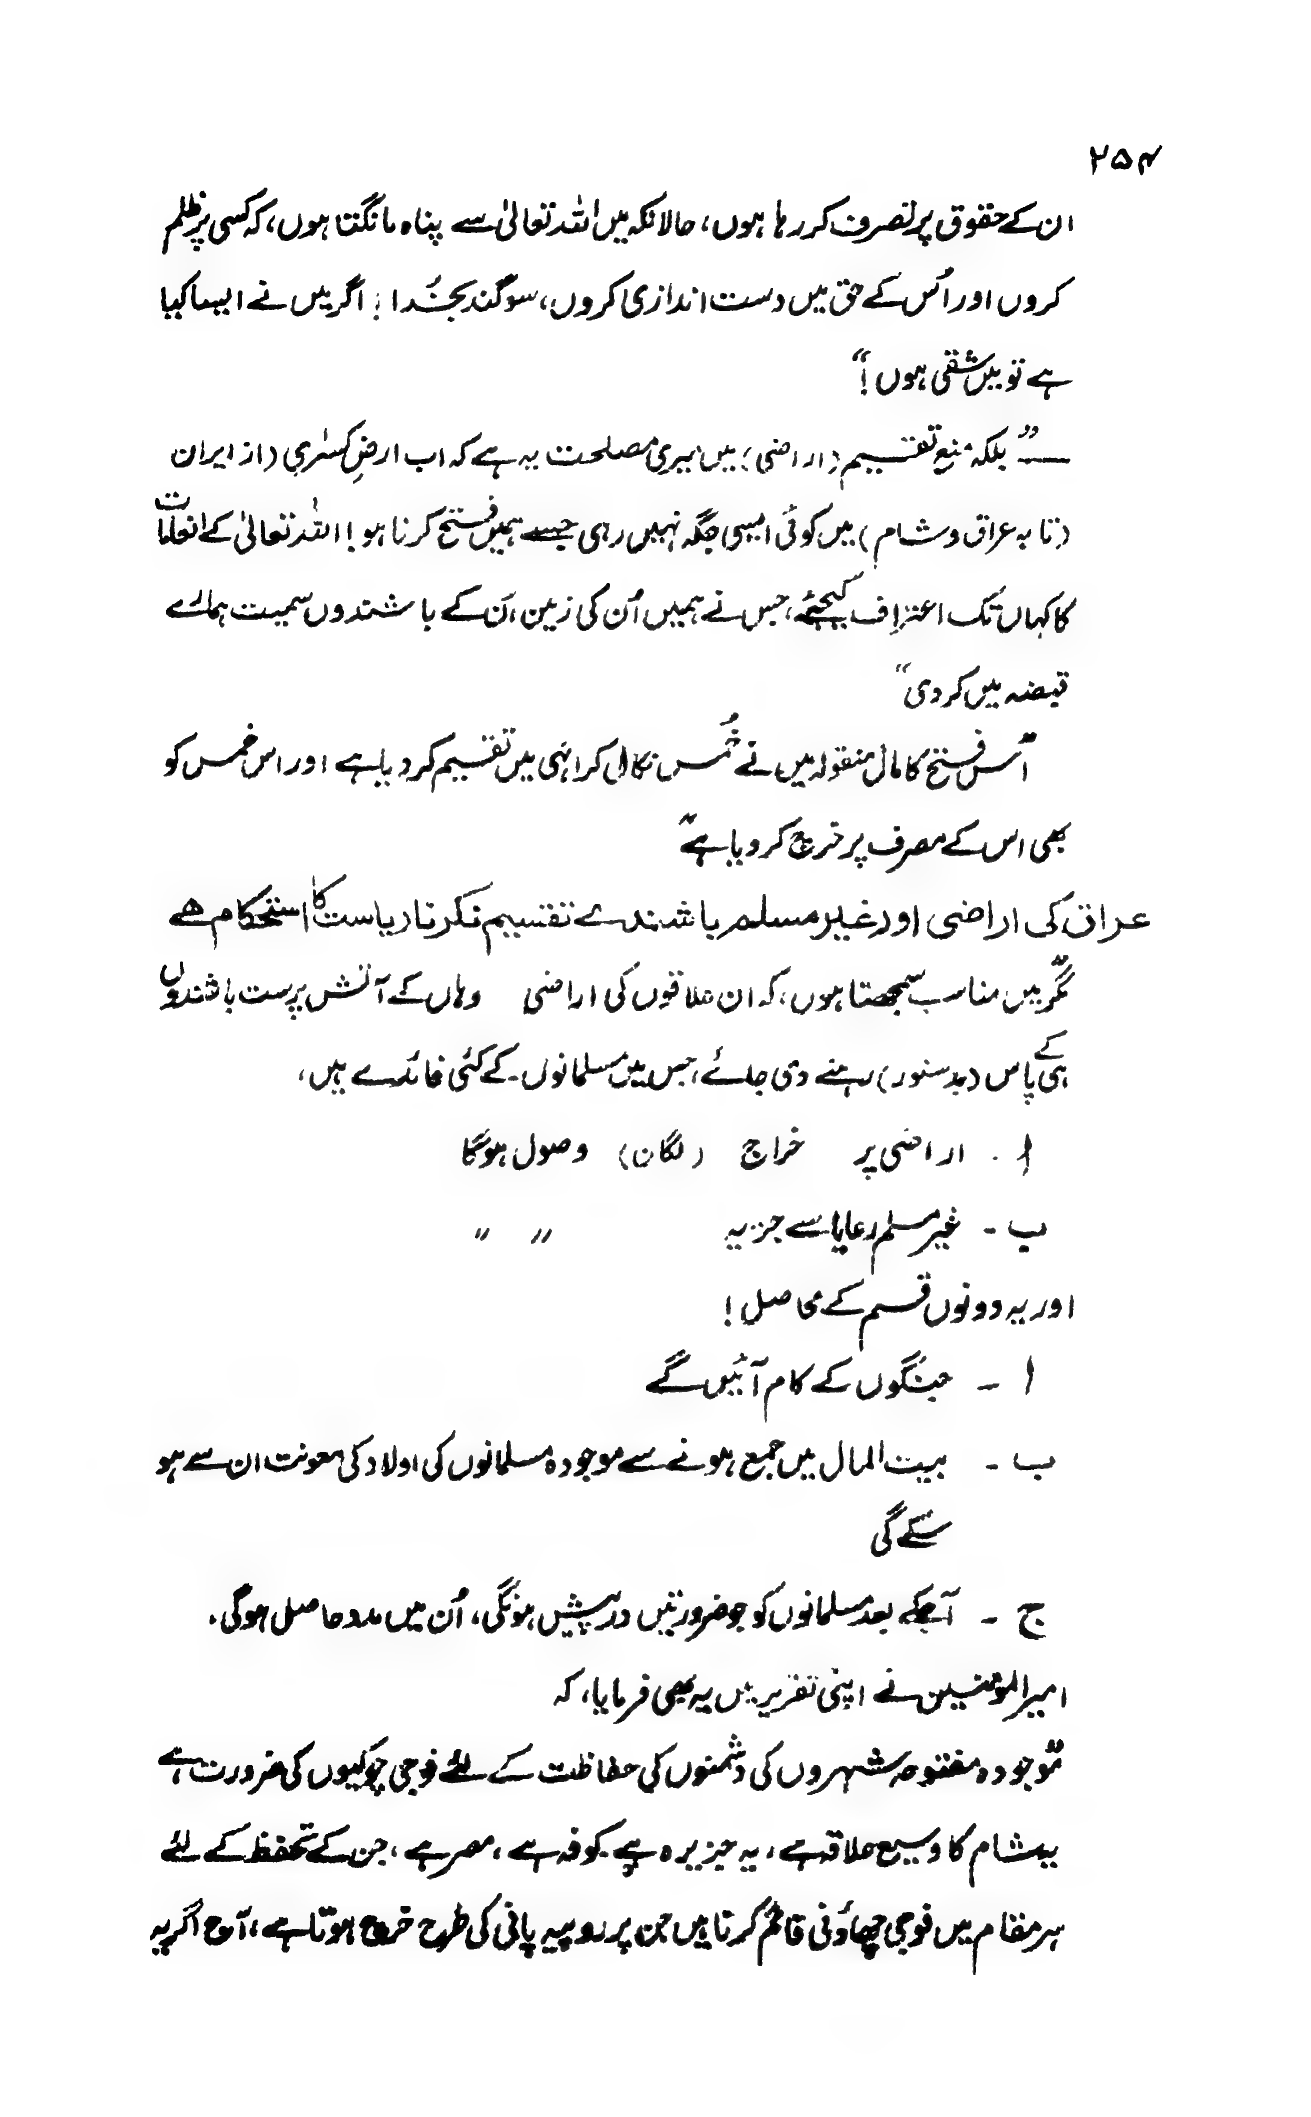 ۲۵۴
ان کے حقوق پر تصرف کر رہا ہوں، حالانکہ میں اللہ تعالیٰ سے پناہ مانگتا ہوں، کہ کسی پر ظلم
کروں اور اُس کے حق میں دست اندازی کروں، سوگند بخُدا! اگر میں نے ایسا کیا
ہے تو میں شقی ہوں!“
— ”بلکہ منع تقسیم (اراضی) میں میری مصلحت یہ ہے کہ اب ارضِ کسرٰی (از ایران
(تا بہ عراق و شام) میں کوئی ایسی جگہ نہیں رہی جسے ہمیں فتح کرنا ہو! اللہ تعالیٰ کے انعامات
کا کہاں تک اعتراف کیجئے، جس نے ہمیں اُن کی زمین، ان کے باشندوں سمیت ہمارے
قبضہ میں کر دی“
”اس فتح کا مال منقولہ میں نے خُمس نکال کر انہی میں تقسیم کر دیا ہے اور اس خمس کو
بھی اس کے مصرف پر خرچ کر دیا ہے“
عراق کی اراضی اور غیر مسلم باشندے تقسیم نکرنا ریاست کا استحکام ہے
”مگر میں مناسب سمجھتا ہوں، کہ ان علاقوں کی اراضی وہاں کے آتش پرست باشندوں
ہی کے پاس (بدستور) رہنے دی جائے، جس میں مسلمانوں کے کئی فائدے ہیں،
ا - اراضی پر خراج (لگان) وصول ہوگا
ب - غیر مسلم رعایا سے جزیہ 〃 〃
اور یہ دونوں قسم کے محاصل!
ا - جنگوں کے کام آئیں گے
ب - بیت المال میں جمع ہونے سے موجودہ مسلمانوں کی اولاد کی معونت ان سے ہو
سکے گی
ج - آجکے بعد مسلمانوں کو جو ضرورتیں درپیش ہونگی، اُن میں مدد حاصل ہوگی.
امیرالمومنین نے اپنی تقریر میں یہ بھی فرمایا، کہ
”موجودہ مفتوحہ شہروں کی دشمنوں کی حفاظت کے لئے فوجی چوکیوں کی ضرورت ہے
یہ شام کا وسیع علاقہ ہے، یہ جزیرہ ہے کوفہ ہے، مصر ہے، جن کے تحفظ کے لئے
ہر مقام میں فوجی چھاؤنی قائم کرنا ہیں جن پر روپیہ پانی کی طرح خرچ ہوتا ہے، آج اگر یہ